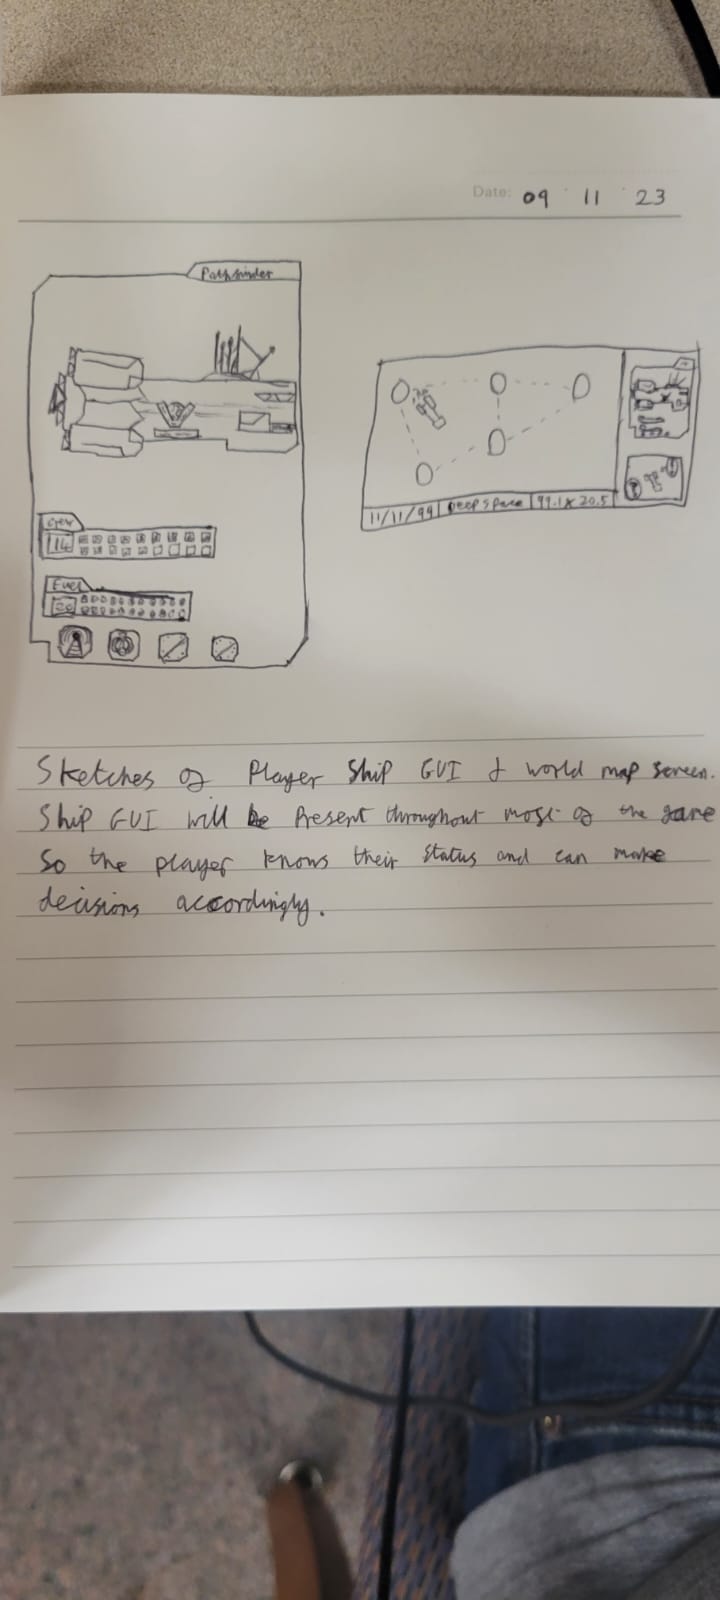 Date: 09 11 23
Pathfinder
Crew
14
Fuel
20
11/11/99 Deep Space 99.1 X 20.5
Sketches of Player Ship GUI & world map screen.
Ship GUI will be Present throughout most of the game
So the player knows their status and can make
decisions accordingly.